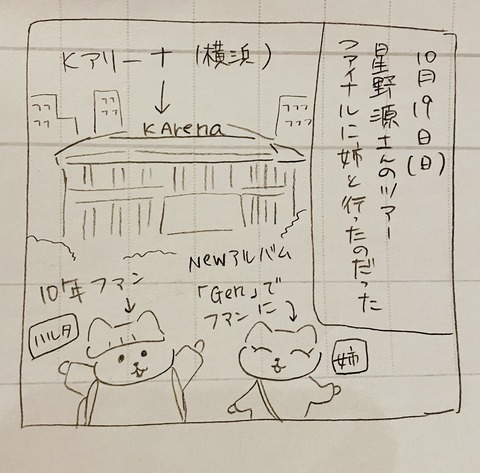 10月19日(日)
星野源さんのツアー
ファイナルに姉と行ったのだった
Kアリーナ(横浜)
K Arena
10年ファン
ハルタ
Newアルバム
「Gen」で
ファンに
姉